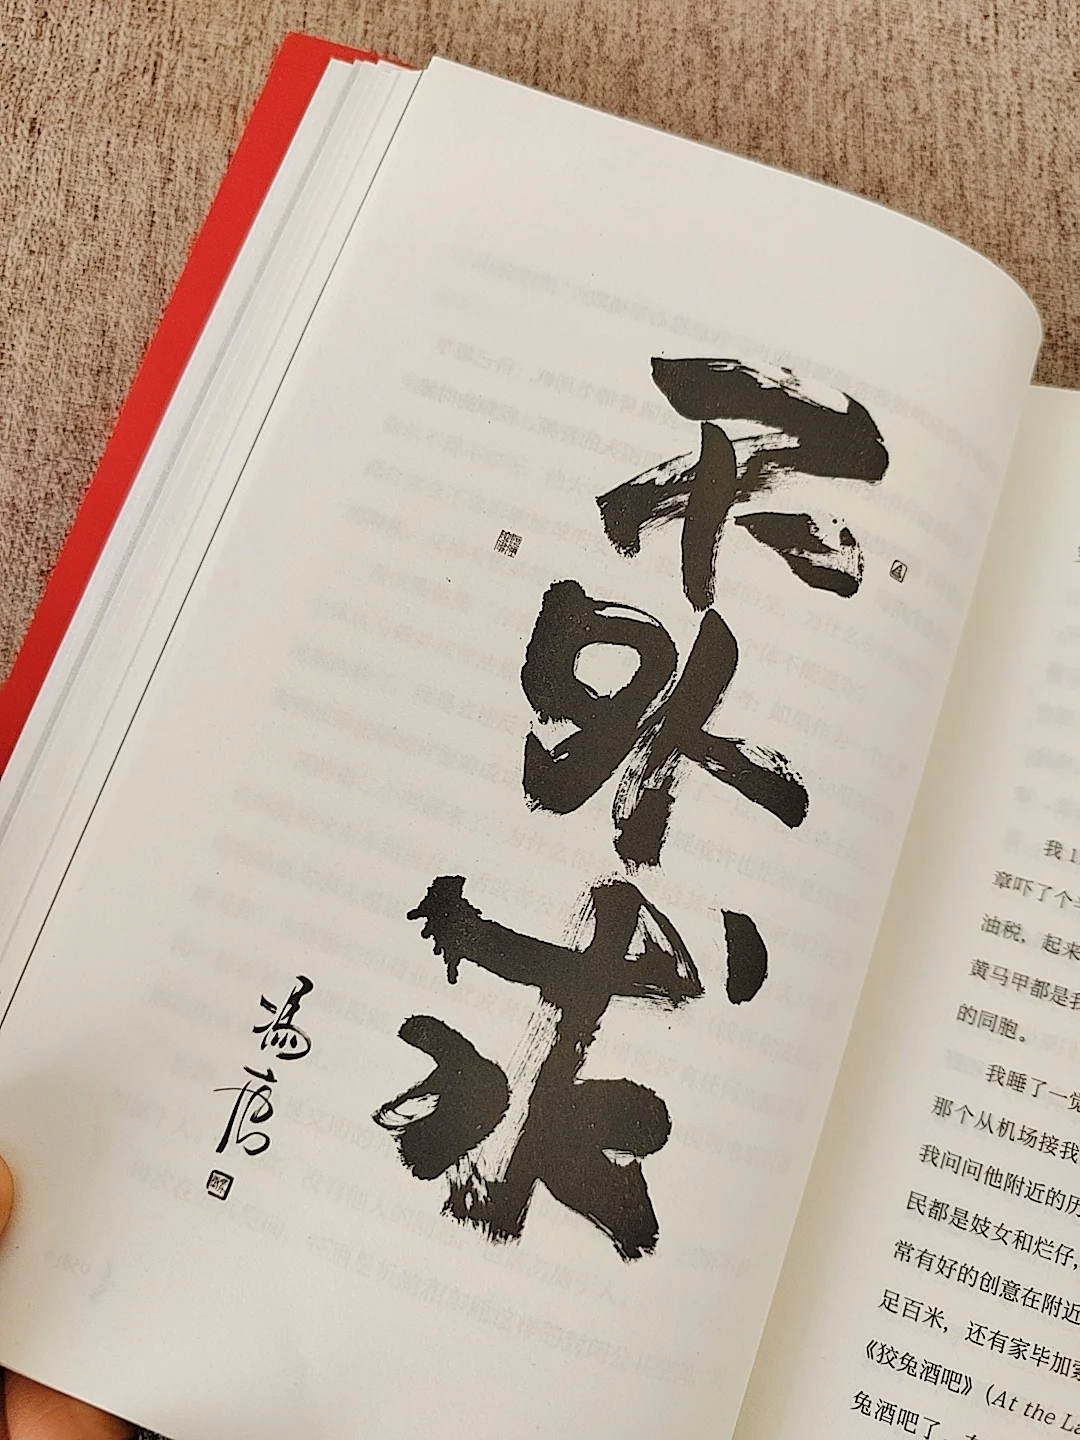 不外求
馮唐
我 1
章吓了个
油税，起来
黄马甲都是我
的同胞。
我睡了一觉
那个从机场接我
我问问他附近的历
民都是妓女和烂仔，
常有好的创意在附近
足百米，还有家毕加索
《狡兔酒吧》（At the La
兔酒吧了，